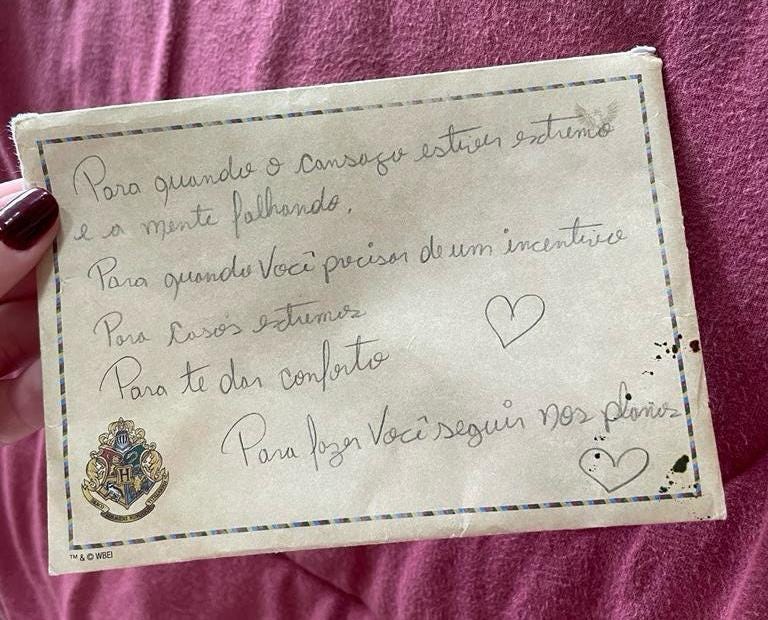 Para quando o cansaço estiver extremo
e a mente falhando.
Para quando Você precisar de um incentivo
Para casos extremos
Para te dar conforto
Para fazer Você seguir nos planos
H
TM & © WBEI